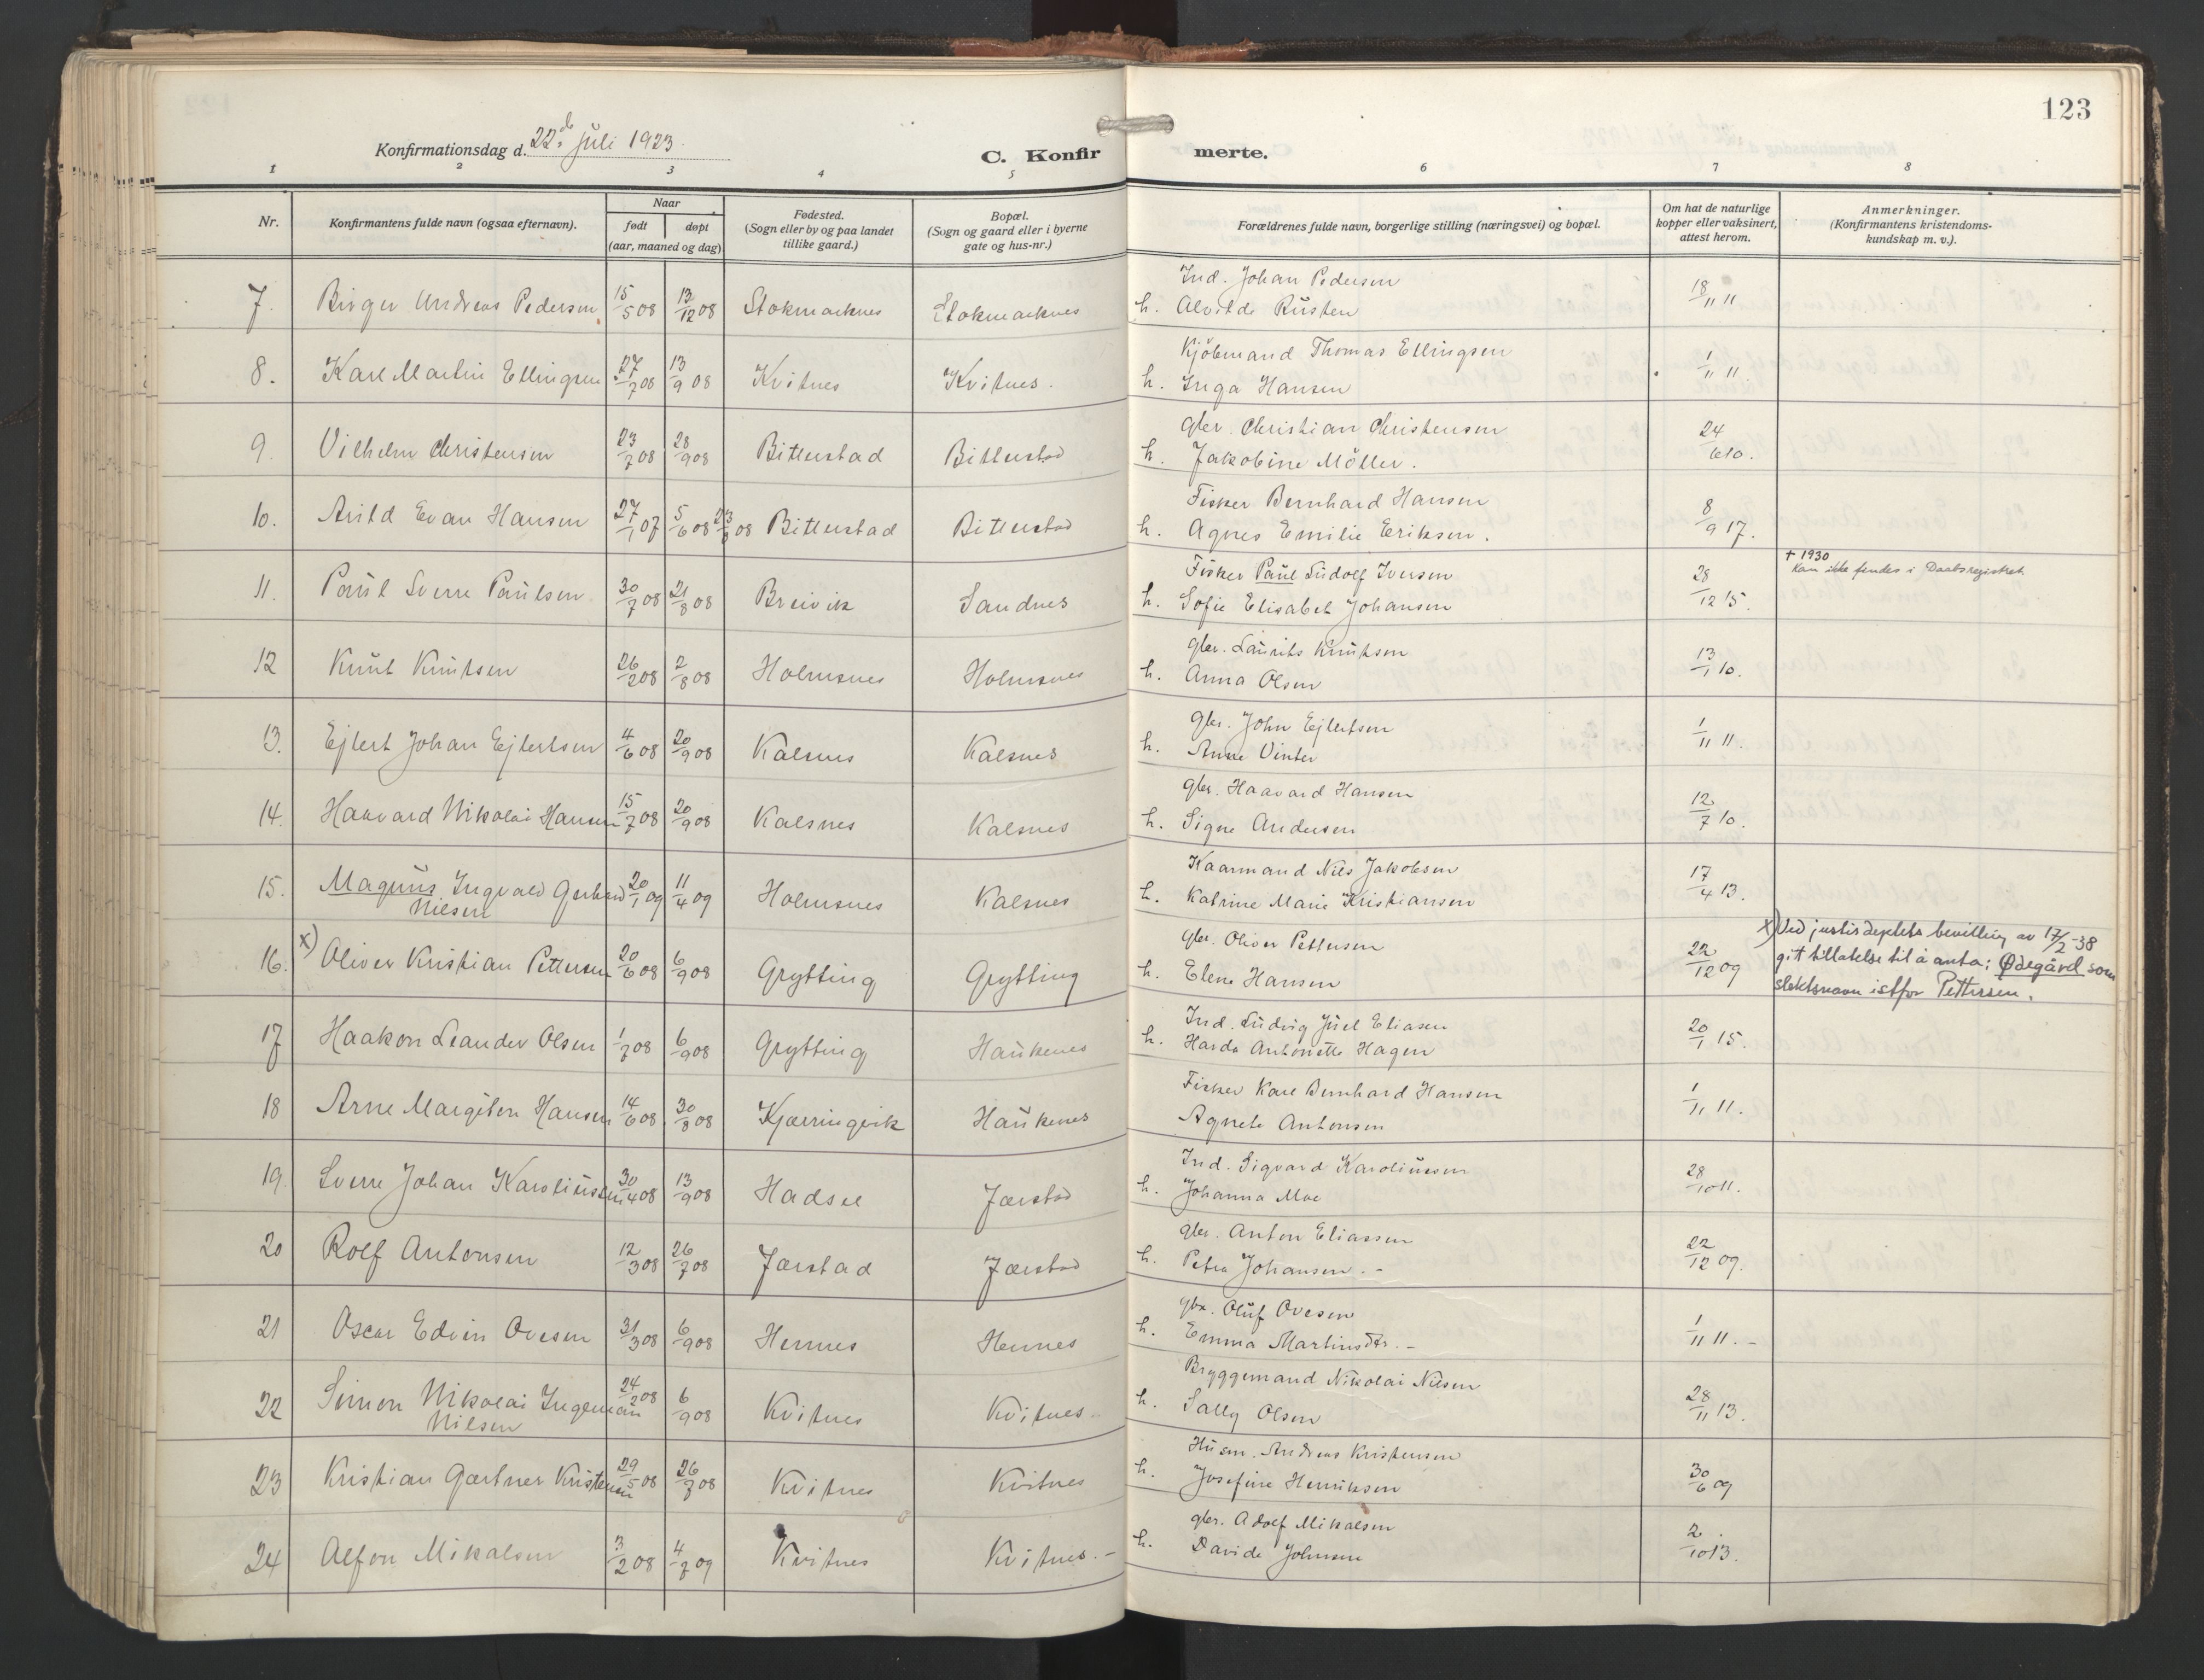 123
Konfirmationsdag d. 22de juli 1923.
C. Konfirmerte.
1 2 3 4 5 6 7 8
Nr.
Konfirmantens fulde navn (ogsaa efternavn).
Naar
født
døpt
(aar, maaned og dag)
Fødested.
(Sogn eller by og paa landet
tillike gaard.)
Bopæl.
(Sogn og gaard eller i byerne
gate og hus-nr.)
Forældrenes fulde navn, borgerlige stilling (næringsvei) og bopæl.
Om hat de naturlige
kopper eller vaksinert,
attest herom.
Anmerkninger.
(Konfirmantens kristendoms-
kundskap m. v.).
7. Birger Andreas Pedersen 15/5 08 13/12 08 Stokmarknes Stokmarknes Ind. Johan Pedersen 18/11 11
h. Alvilde Rüsten
8. Karl Martin Ellingsen 27/7 08 13/9 08 Kvitnes Kvitnes. Kjöbmand Thomas Ellingsen 1/11 11.
h. Inga Hansen
9. Vilhelm Christensen 23/7 08 28/9 08 Bitterstad Bitterstad gbr. Christian Christensen 24/6 10.
h. Jakobine Möller.
10. Arild Evan Hansen 27/1 07 5/6 08 23/8 08 Bitterstad Bitterstad Fisker Bernhard Hansen 8/9 17.
h. Agnes Emilie Eriksen.
11. Paül Sverre Paülsen 30/7 08 21/8 08 Breivik Sandnes Fisker Paül Lüdolf Iversen 28/12 15.
h. Sofie Elisabet Johansen
† 1930
Kan ikke findes i Daabsregistret
12 Knüt Knütsen 26/2 08 2/8 08 Holmsnes Holmsnes gbr. Laürits Knütsen 13/1 10.
h. Anna Olsen
13. Ejlert Johan Ejlertsen 4/6 08 20/9 08 Kalsnes Kalsnes gbr. John Ejlertsen 1/11 11.
h. Anne Vinter
14. Haavard Nikolai Hansen 15/7 08 20/9 08 Kalsnes Kalsnes gbr. Haavard Hansen 12/7 10.
h. Signe Andersen
15. Magnüs Ingvald Gerhard 20/1 09 11/4 09 Holmsnes Kalsnes Kaarmand Nils Jakobsen 17/4 13.
Nilsen h. Katrine Marie Kristiansen
16. x) Oliver Kristian Pettersen 20/6 08 6/9 08 Grytting Grytting gbr. Oliver Pettersen 22/12 09
h. Elene Hansen
x) Ved justisdeptets bevilling av 17/2-38
gitt tillatelse til å anta: Ødegård som
slektsnavn istfor Pettersen.
17 Haakon Leander Olsen 1/7 08 6/9 08 Grytting Haükenes Ind. Lüdvig Jüel Eliasen 20/1 15.
h. Harda Antonette Hagen
18 Arne Margiton Hansen 14/6 08 30/8 08 Kjærringvik Haükenes Fisker Karl Bernhard Hansen 1/11 11.
Agnete Antonsen
19. Sverre Johan Karoliüssen 30/4 08 13/9 08 Hadsel Jærstad Ind. Sigvard Karoliüssen 28/10 11.
h. Johanna Moe
20 Rolf Antonsen 12/3 08 26/7 08 Jærstad Jærstad gbr. Anton Eliassen 22/12 09.
h. Petra Johansen. -
21 Oscar Edvin Ovesen 31/3 08 6/9 08 Hennes Hennes gbr. Olüf Ovesen 1/11 11. -
h. Emma Martinsdtr. -
22 Simon Nikolai Ingeman 24/2 08 6/9 08 Kvitnes Kvitnes - Bryggemand Nikolai Nilsen 28/11 13.
Nilsen h. Sally Olsen
23 Kristian Gærtner Kristensen 29/5 08 26/7 08 Kvitnes Kvitnes Hüsm. Andreas Kristensen 30/6 09
h. Josefine Henriksen
24 Alfon Mikalsen 3/2 08 4/7 09 Kvitnes Kvitnes. - gbr. Adolf Mikalsen 2/10 13.
h. Davide Johnsen